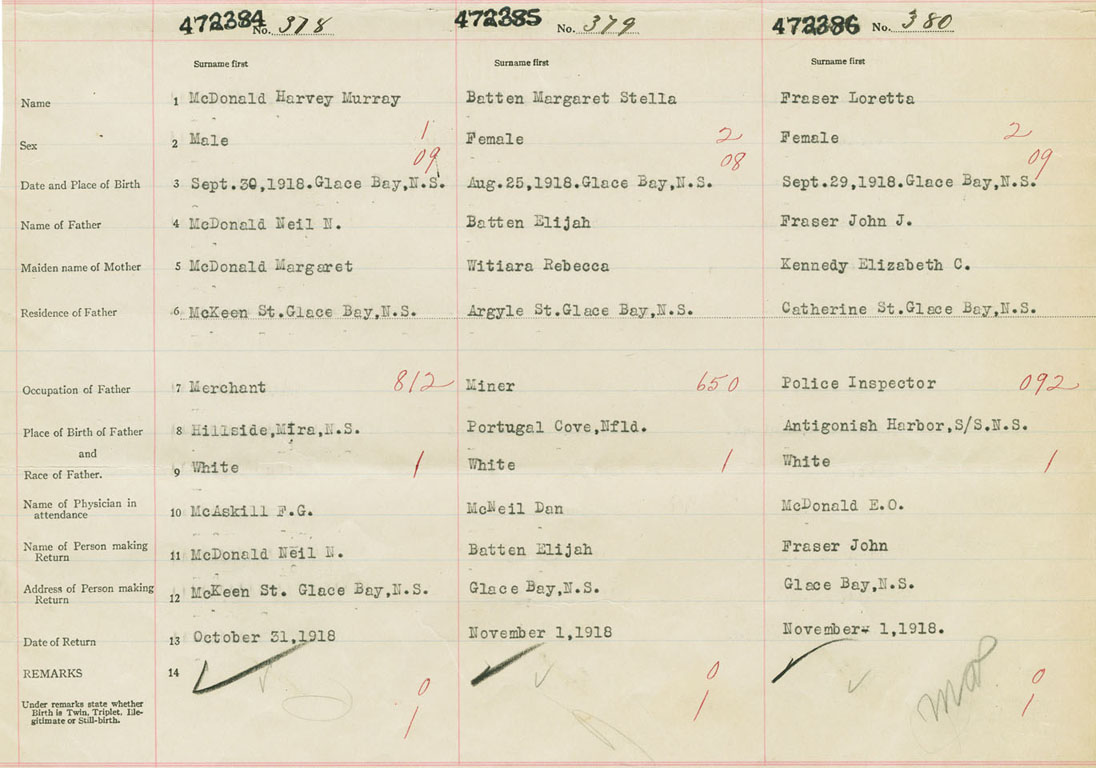 472384 No. 378 472385 No. 379 472386 No. 380
Surname first Surname first Surname first
Name 1 McDonald Harvey Murray Batten Margaret Stella Fraser Loretta
Sex 2 Male 1 Female 2 Female 2
09 08 09
Date and Place of Birth 3 Sept.30,1918.Glace Bay,N.S. Aug.25,1918.Glace Bay,N.S. Sept.29,1918.Glace Bay,N.S.
Name of Father 4 McDonald Neil N. Batten Elijah Fraser John J.
Maiden name of Mother 5 McDonald Margaret Witiara Rebecca Kennedy Elizabeth C.
Residence of Father 6 McKeen St.Glace Bay,N.S. Argyle St.Glace Bay,N.S. Catherine St.Glace Bay,N.S.
Occupation of Father 7 Merchant 812 Miner 650 Police Inspector 092
Place of Birth of Father 8 Hillside,Mira,N.S. Portugal Cove,Nfld. Antigonish Harbor,S/S.N.S.
and
Race of Father. 9 White 1 White 1 White 1
Name of Physician in
attendance 10 McAskill F.G. McNeil Dan McDonald E.O.
Name of Person making
Return 11 McDonald Neil N. Batten Elijah Fraser John
Address of Person making
Return 12 McKeen St. Glace Bay,N.S. Glace Bay,N.S. Glace Bay,N.S.
Date of Return 13 October 31,1918 November 1,1918 November 1,1918.
REMARKS 14
0 0 0
Under remarks state whether
Birth is Twin, Triplet, Ille-
gitimate or Still-birth.
1 1 1